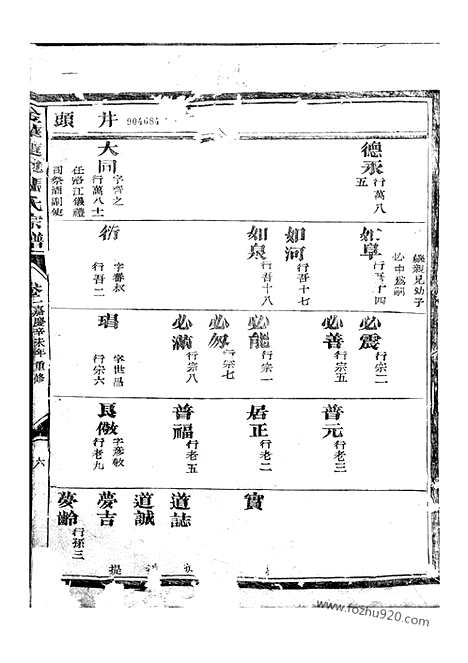 井頭
904684
德承 行萬八五
大同 字齊之 行萬八士 任浴江儀禮司祭酒副使
如阜 行吾十四 繼親兄幼子必中為嗣
如河 行吾十七
如泉 行吾十八
衍 字蕃叔 行吾二
必震 行宗二
必善 行宗五
必能 行宗一
必匆 行宗七
必滿 行宗八
瑒 字世昌 行宗六
普元 行老三
居正 行老二
普福 行老五
良傲 字彥敏 行老九
實
道誌
道誠
夢吉
夢齡 行孫三
氏宗譜
卷二 嘉慶辛未年重修
六
提
www.fozhu920.com